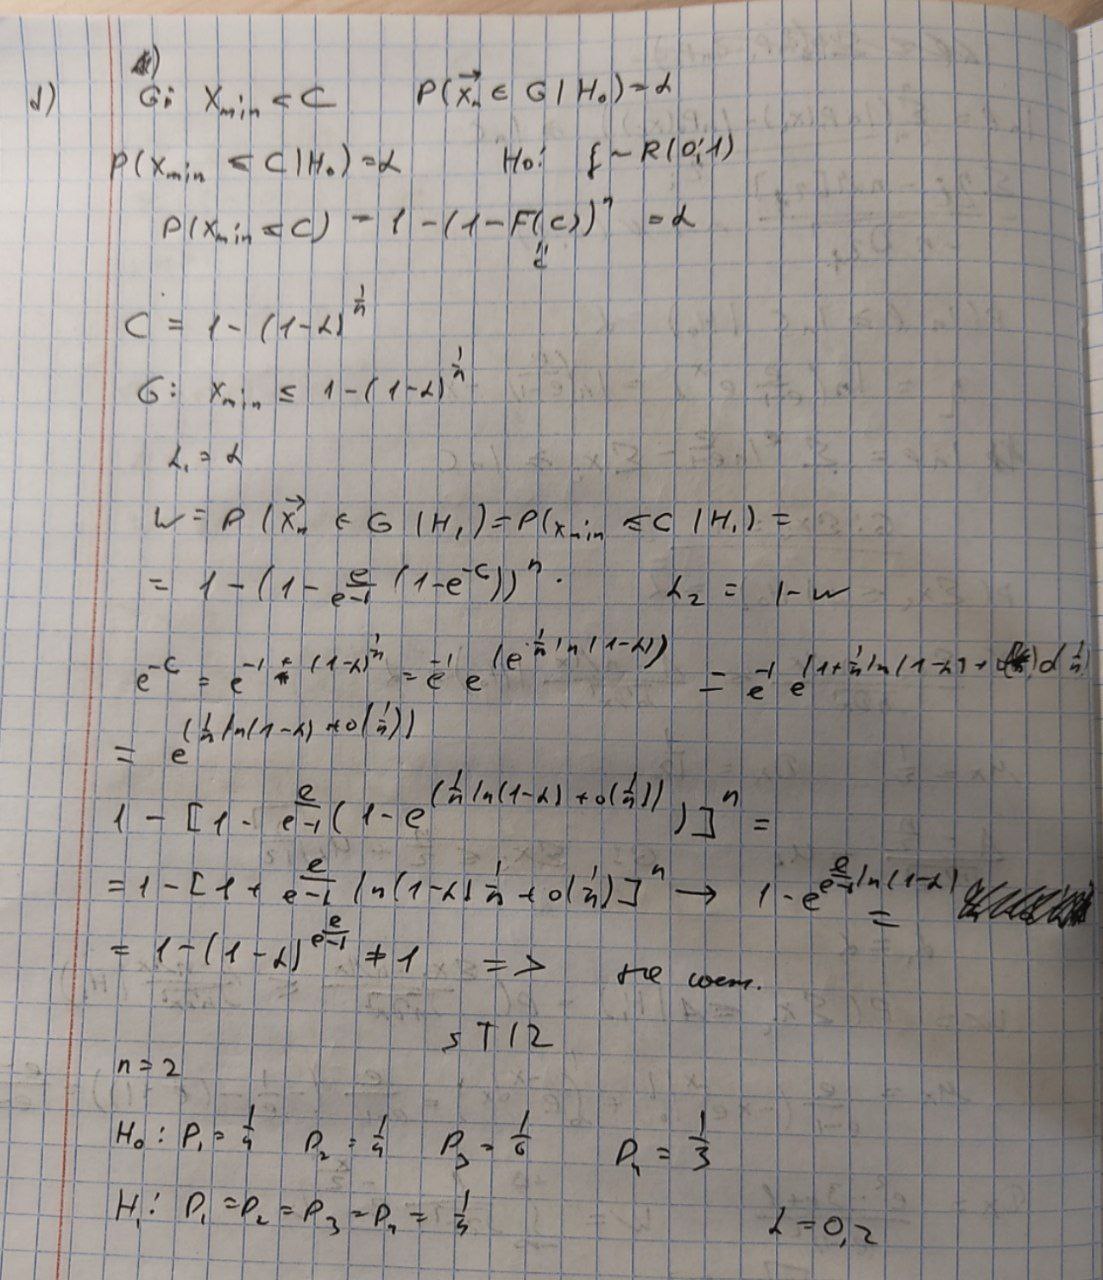 d) G: X_min < C   P(X⃗_n ∈ G | H₀) = α
P(X_min ≤ C | H₀) = α   H₀: ξ ~ R(0;1)
P(X_min < C) = 1 - (1 - F(c))ⁿ = α
c
C = 1 - (1-α)^{1/n}
G: X_min ≤ 1 - (1-α)^{1/n}
α₁ = α
W = P(X⃗_n ∈ G | H₁) = P(X_min ≤ C | H₁) =
= 1 - (1 - e/(e-1) (1 - e^{-c}))ⁿ.   α₂ = 1 - W
e^{-c} = e^{-1 + (1-α)^{1/n}} = e^{-1} e^{(e^{1/n ln(1-α)})} = e^{-1} e^{(1 + 1/n ln(1-α) + o(1/n))}
= e^{(1/n ln(1-α) + o(1/n))}
1 - [1 - e/(e-1) (1 - e^{(1/n ln(1-α) + o(1/n))})]ⁿ =
= 1 - [1 + e/(e-1) ln(1-α) 1/n + o(1/n)]ⁿ → 1 - e^{e/(e-1) ln(1-α)} =
= 1 - (1-α)^{e/(e-1)} ≠ 1 => не сост.
ST12
n = 2
H₀: P₁ = 1/4   P₂ = 1/4   P₃ = 1/6   P₄ = 1/3
H₁: P₁ = P₂ = P₃ = P₄ = 1/4   α = 0,2